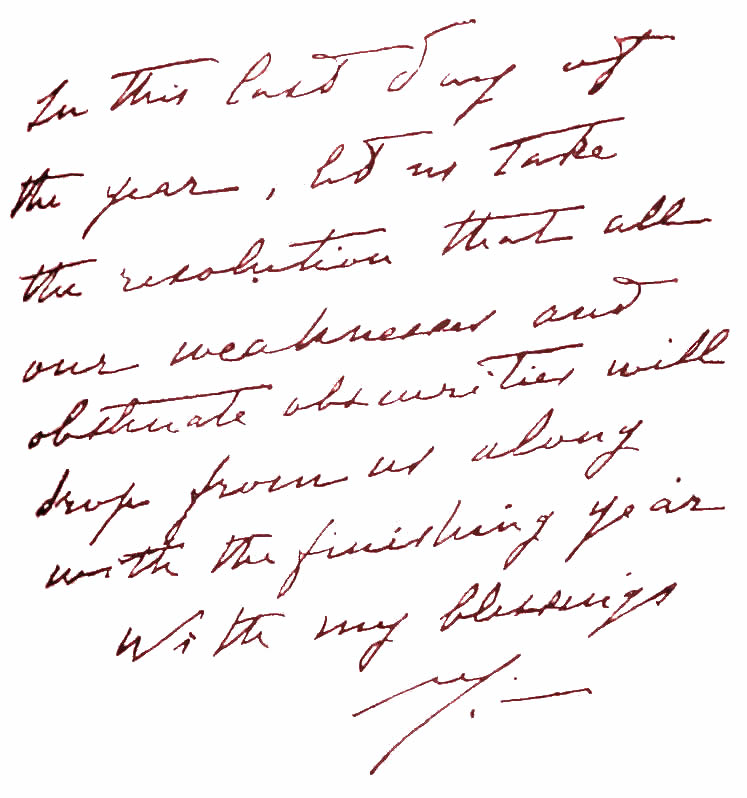 In this last day of
the year, let us take
the resolution that all
our weaknesses and
obstinate obscurities will
drop from us along
with the finishing year
With my blessings